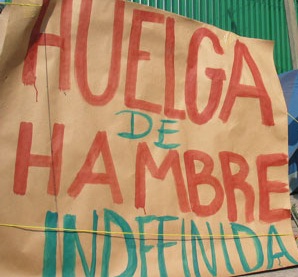 HUELGA
DE
HAMBRE
INDEFINIDA